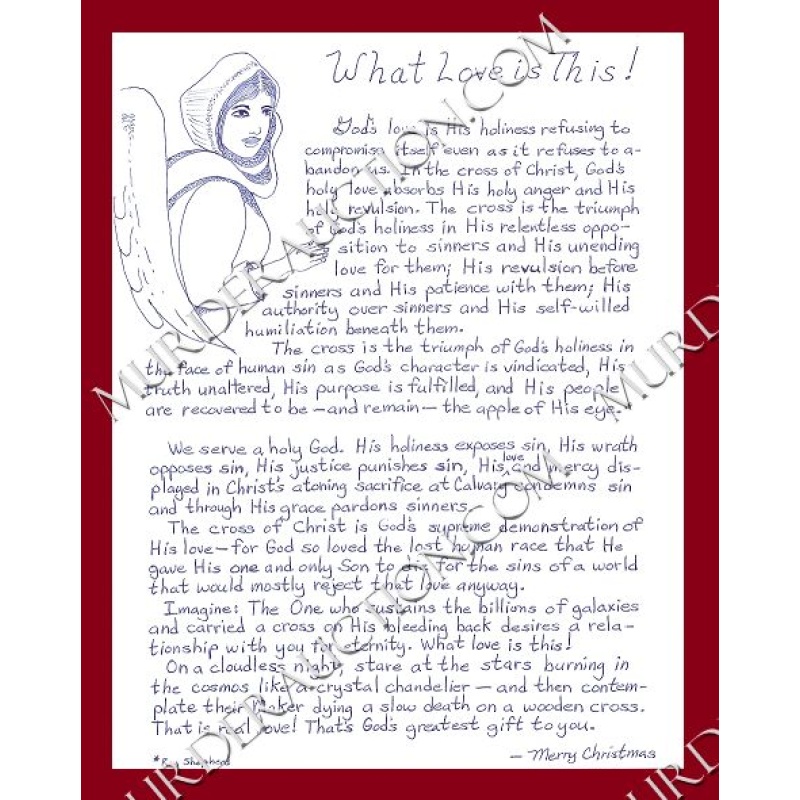 What Love is This!
God's love is His holiness refusing to
compromise itself even as it refuses to a-
bandon us. In the cross of Christ, God's
holy love absorbs His holy anger and His
holy revulsion. The cross is the triumph
of God's holiness in His relentless oppo-
sition to sinners and His unending
love for them; His revulsion before
sinners and His patience with them; His
authority over sinners and His self-willed
humiliation beneath them.
The cross is the triumph of God's holiness in
the face of human sin as God's character is vindicated, His
truth unaltered, His purpose is fulfilled, and His people
are recovered to be —and remain— the apple of His eye.*
We serve a holy God. His holiness exposes sin, His wrath
opposes sin, His justice punishes sin, His love and mercy dis-
played in Christ's atoning sacrifice at Calvary condemns sin
and through His grace pardons sinners.
The cross of Christ is God's supreme demonstration of
His love—for God so loved the lost human race that He
gave His one and only Son to die for the sins of a world
that would mostly reject that love anyway.
Imagine: The One who sustains the billions of galaxies
and carried a cross on His bleeding back desires a rela-
tionship with you for eternity. What love is this!
On a cloudless night, stare at the stars burning in
the cosmos like a crystal chandelier — and then contem-
plate their Maker dying a slow death on a wooden cross.
That is real love! That's God's greatest gift to you.
— Merry Christmas
*Roy Shepherd
MURDERAUCTION.COM
MURDERAUCTION.COM